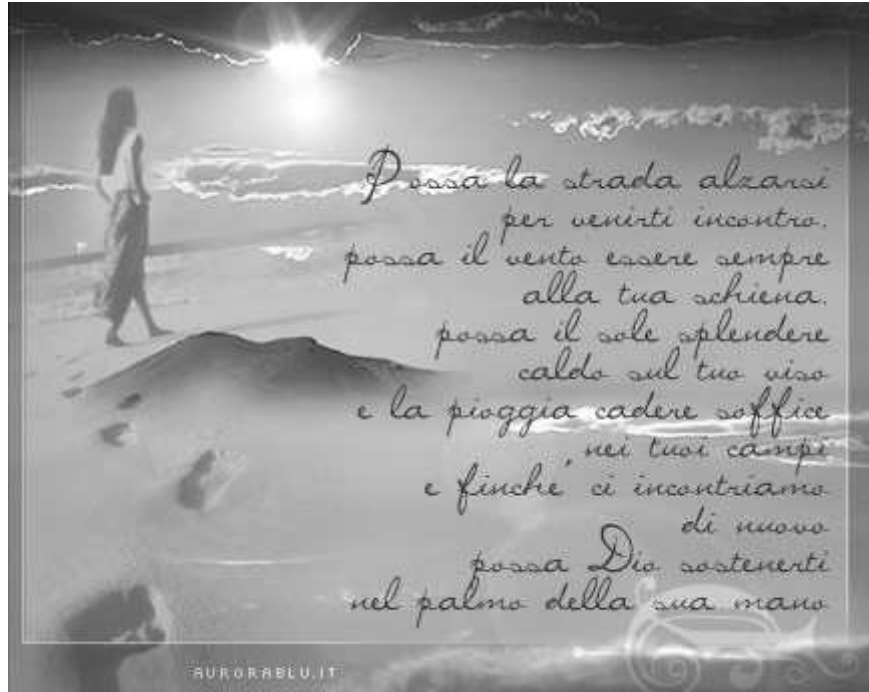 Possa la strada alzarsi
per venirti incontro,
possa il vento essere sempre
alla tua schiena,
possa il sole splendere
caldo sul tuo viso
e la pioggia cadere soffice
nei tuoi campi
e finche' ci incontriamo
di nuovo
possa Dio sostenerti
nel palmo della sua mano
AURORABLU.IT